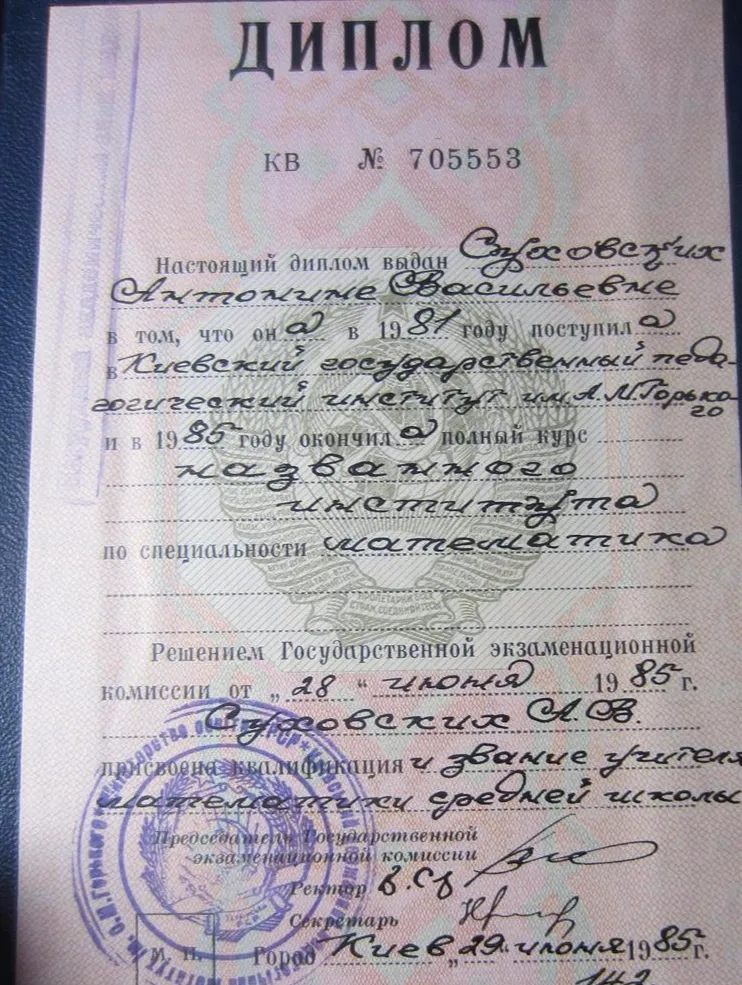 ДИПЛОМ
КВ № 705553
Настоящий диплом выдан Суховских
Антонине Васильевне
в том, что он а в 1981 году поступил а
в Киевский государственный педа-
гогический институт им. А.М.Горько-
го
и в 1985 году окончил а полный курс
названного
института
по специальности математика
ПРОЛЕТАРИИ ВСЕХ
СТРАН, СОЕДИНЯЙТЕСЬ
Решением Государственной экзаменационной
комиссии от „28“ июня 1985 г.
Суховских А.В.
присвоена квалификация и звание учителя
математики средней школы
Председатель Государственной
экзаменационной комиссии
Ректор
Секретарь
М. П.
Город Киев „29“ июня 1985 г.
142